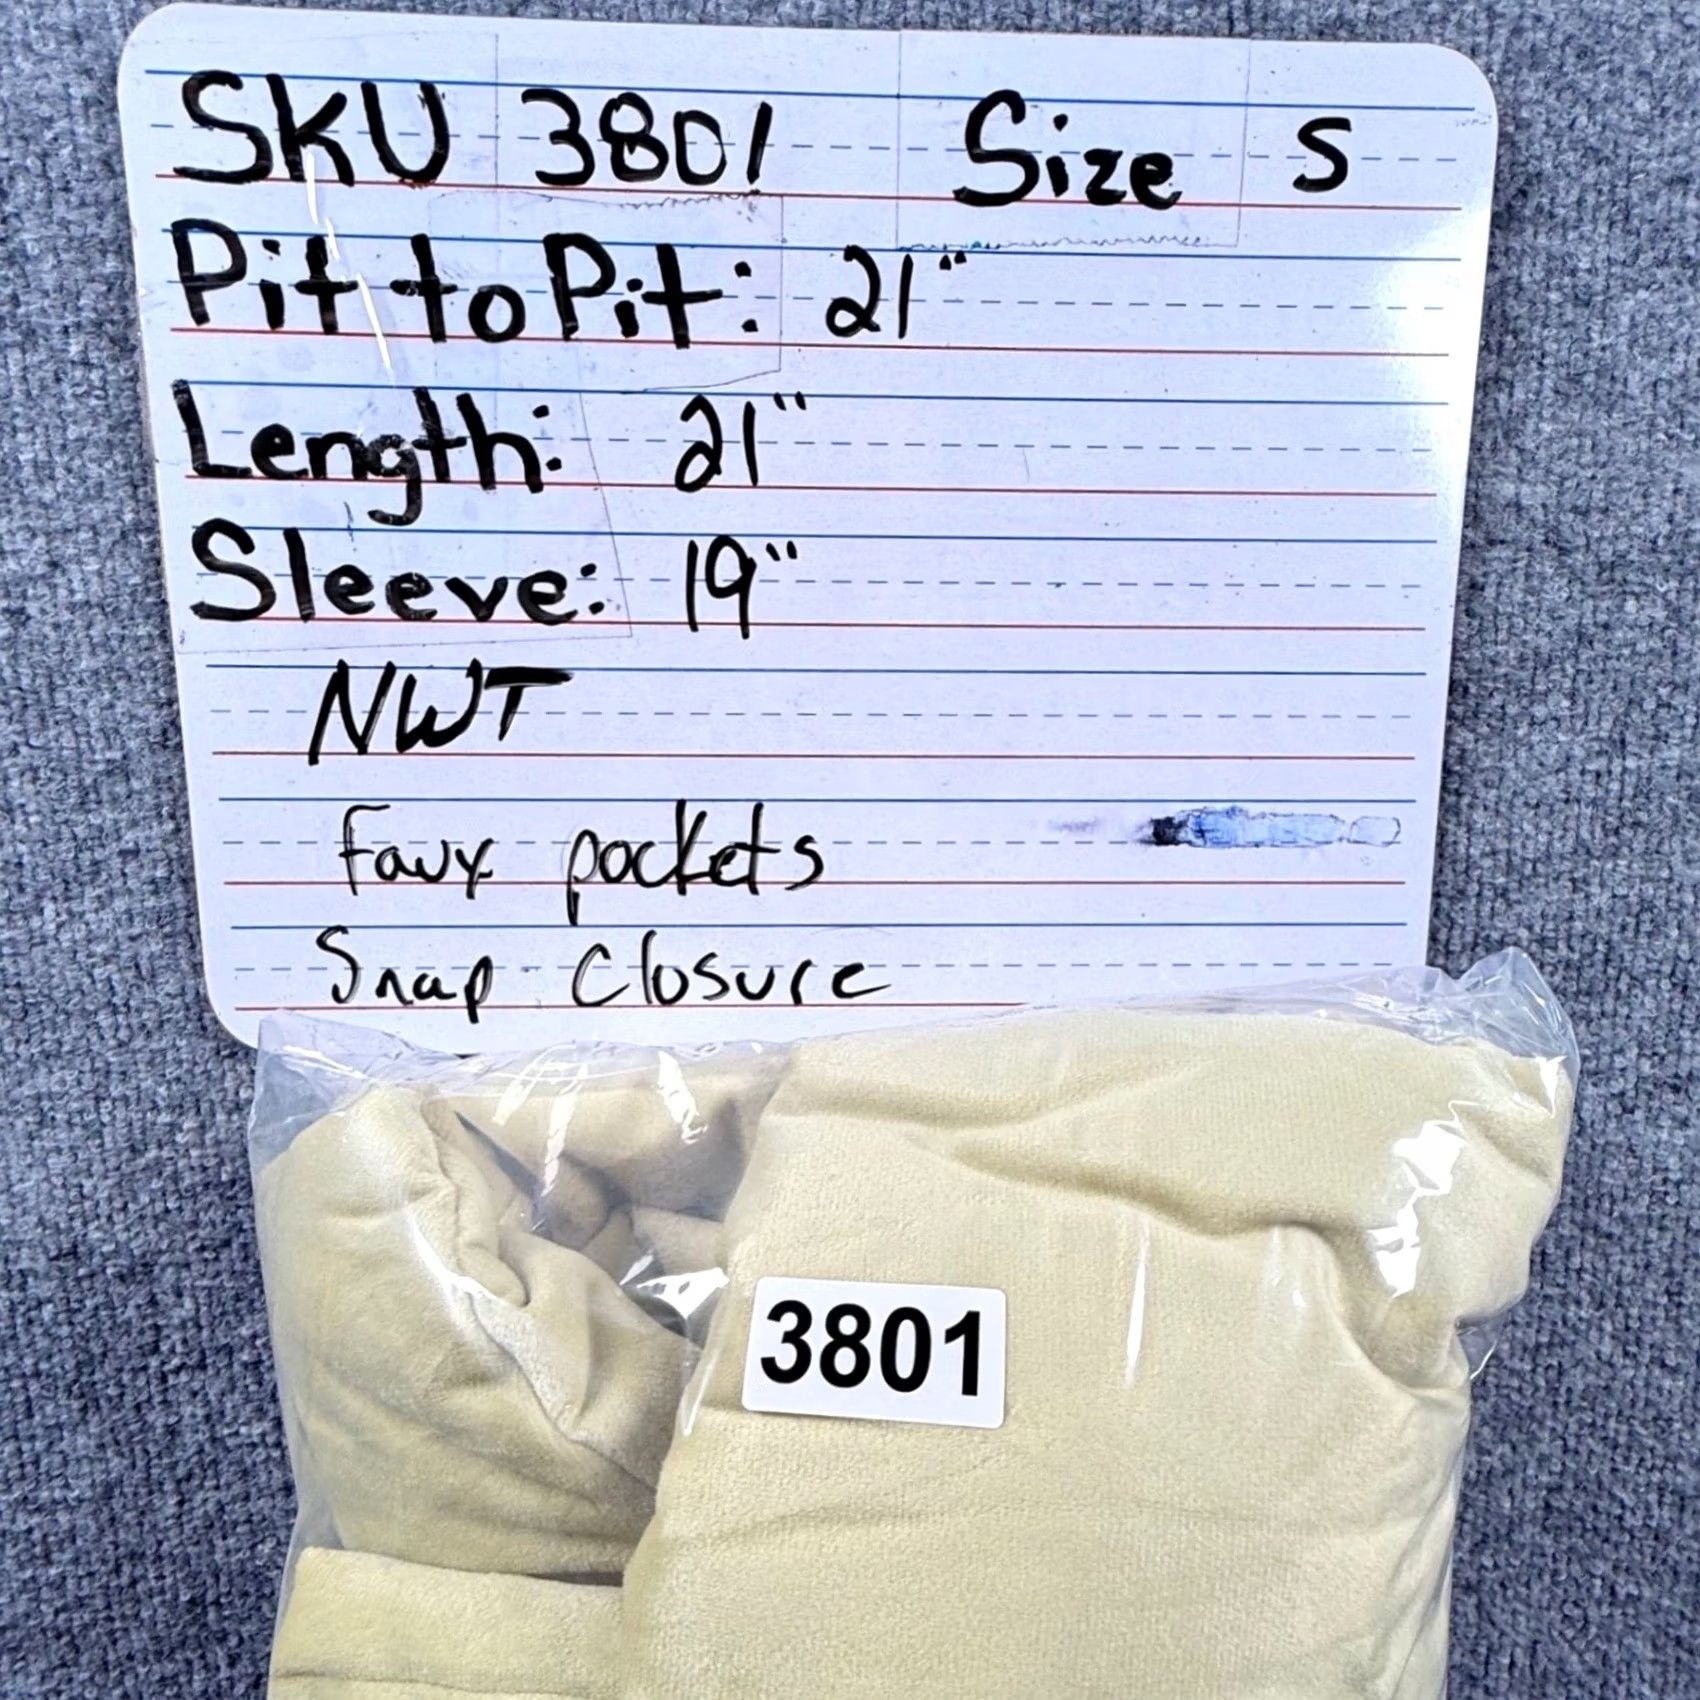 SKU 3801 Size S
Pit to Pit: 21"
Length: 21"
Sleeve: 19"
NWT
Faux pockets
Snap Closure
3801